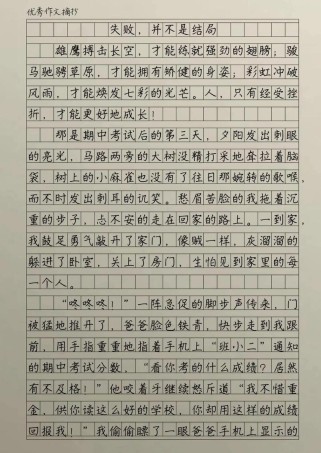 优秀作文摘抄
失败，并不是结局
雄鹰搏击长空，才能练就强劲的翅膀；骏
马驰骋草原，才能拥有矫健的身姿；彩虹冲破
风雨，才能焕发七彩的光芒。人，只有经受挫
折，才能更好地成长！
那是期中考试后的第三天，夕阳发出刺眼
的亮光，马路两旁的大树没精打采地耷拉着脑
袋，树上的小麻雀也没有了往日那婉转的歌喉，
而不时发出刺耳的讥笑。愁眉苦脸的我拖着沉
重的步子，忐不安的走在回家的路上。一到家，
我鼓足勇气敲开了家门，像贼一样，灰溜溜的
躲进了卧室，关上了房门，生怕见到家里的每
一个人。
“咚咚咚！”一阵急促的脚步声传来，门
被猛地推开了，爸爸脸色铁青，快步走到我跟
前，用手指重重地指着手机上“班小二”通知
的期中考试分数，“看你考的什么成绩？居然
有不及格！”他咬着牙继续怒斥道“我不惜重
金，供你读这么好的学校，你却用这样的成绩
回报我！”我偷偷瞟了一眼爸爸手机上显示的